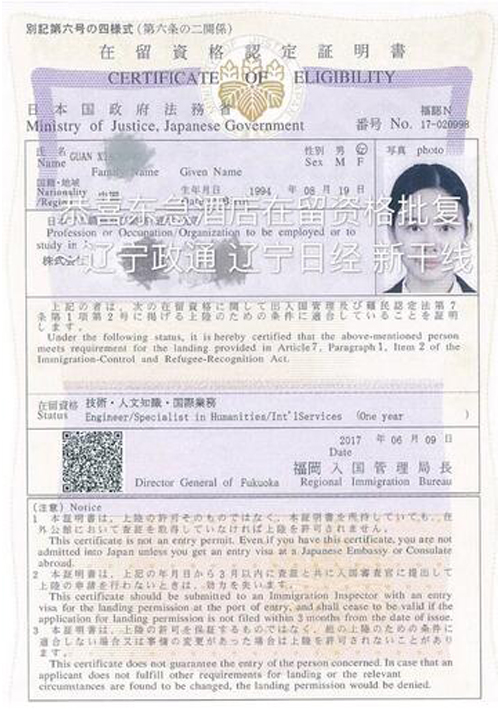 別記第六号の四様式(第六条の二関係)
在留資格認定証明書
CERTIFICATE OF ELIGIBILITY
日本国政府法務省
Ministry of Justice, Japanese Government
福認N
番号 No. 17-020998
氏名
Name
GUAN
Family Name Given Name
性別 男 女
Sex M F
写真 photo
国籍・地域
Nationality
/Region
中国
生年月日 1994 年 08 月 19 日
恭喜东急酒店在留资格批复
Profession or Occupation/Organization to be employed or to
study in
株式会社
辽宁政通 辽宁日经 新干线
上記の者は、次の在留資格に関して出入国管理及び難民認定法第7
条第1項第2号に掲げる上陸のための条件に適合していることを証明
します。
Under the following status, it is hereby certified that the above-mentioned person
meets requirement for the landing provided in Article 7, Paragraph 1, Item 2 of the
Immigration-Control and Refugee-Recognition Act.
在留資格 技術・人文知識・国際業務
Status Engineer/Specialist in Humanities/Int'lServices (One year )
2017 年 06 月 09 日
Date
福岡入国管理局長
Director General of Fukuoka Regional Immigration Bureau
(注意) Notice
1 本証明書は、上陸の許可そのものではなく、本証明書を所持していても、在
外公館において査証を取得していなければ上陸を許可されません。
This certificate is not an entry permit. Even,if you have this certificate, you are not
admitted into Japan unless you get an entry visa at a Japanese Embassy or Consulate
abroad.
2 本証明書は、上記の年月日から3月以内に査証と共に入国審査官に提出して
上陸の申請を行わないときは、効力を失います。
This certificate should be submitted to an Immigration Inspector with an entry
visa for the landing permission at the port of entry, and shall cease to be valid if the
application for landing permission is not filed within 3 months from the date of issue.
3 本証明書は、上陸の許可を保証するものではなく、他の上陸のための条件に
適合しない場合又は事情の変更があった場合は上陸を許可されないことがあり
ます。
This certificate does not guarantee the entry of the person concerned. In case that an
applicant does not fulfill other requirements for landing or the relevant
circumstances are found to be changed, the landing permission would be denied.